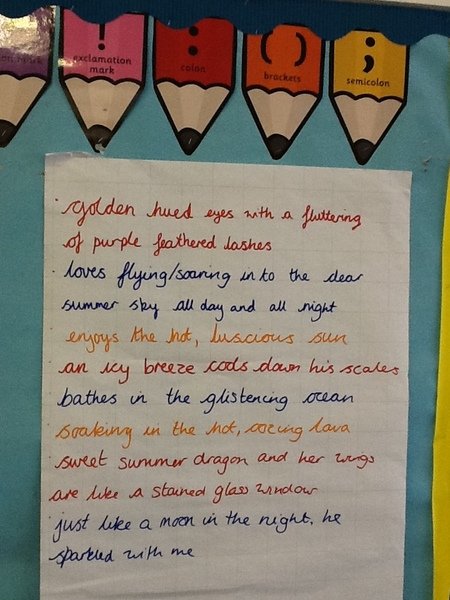 on mark
!
exclamation
mark
:
colon
( )
brackets
;
semicolon
Golden hued eyes with a fluttering
of purple feathered lashes
loves flying/soaring in to the clear
summer sky all day and all night
enjoys the hot, luscious sun
an icy breeze cools down his scales
bathes in the glistening ocean
soaking in the hot, oozing lava
sweet summer dragon and her wings
are like a stained glass window
just like a moon in the night, he
sparkled with me